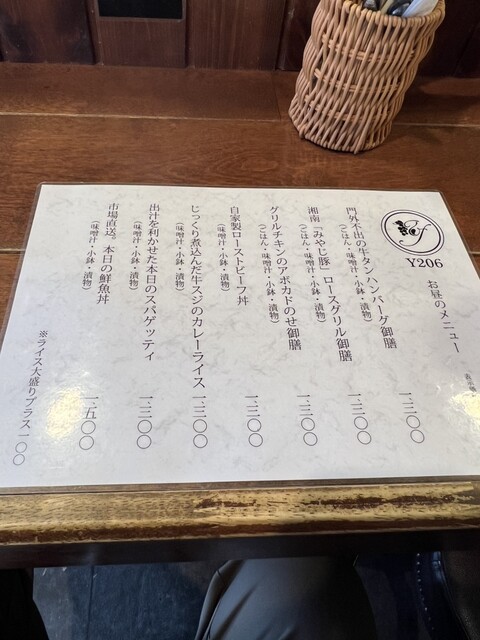 Y206
お昼のメニュー
門外不出の牛タンハンバーグ御膳 一、三〇〇
(ごはん・味噌汁・小鉢・漬物)
湘南「みやじ豚」ロースグリル御膳 一、三〇〇
(ごはん・味噌汁・小鉢・漬物)
グリルチキンのアボカドのせ御膳 一、三〇〇
(ごはん・味噌汁・小鉢・漬物)
自家製ローストビーフ丼 一、三〇〇
(味噌汁・小鉢・漬物)
じっくり煮込んだ牛スジのカレーライス 一、三〇〇
(味噌汁・小鉢・漬物)
出汁を利かせた本日のスパゲッティ 一、三〇〇
(味噌汁・小鉢・漬物)
市場直送。本日の鮮魚丼 一、五〇〇
(味噌汁・小鉢・漬物)
※ライス大盛りプラス一〇〇